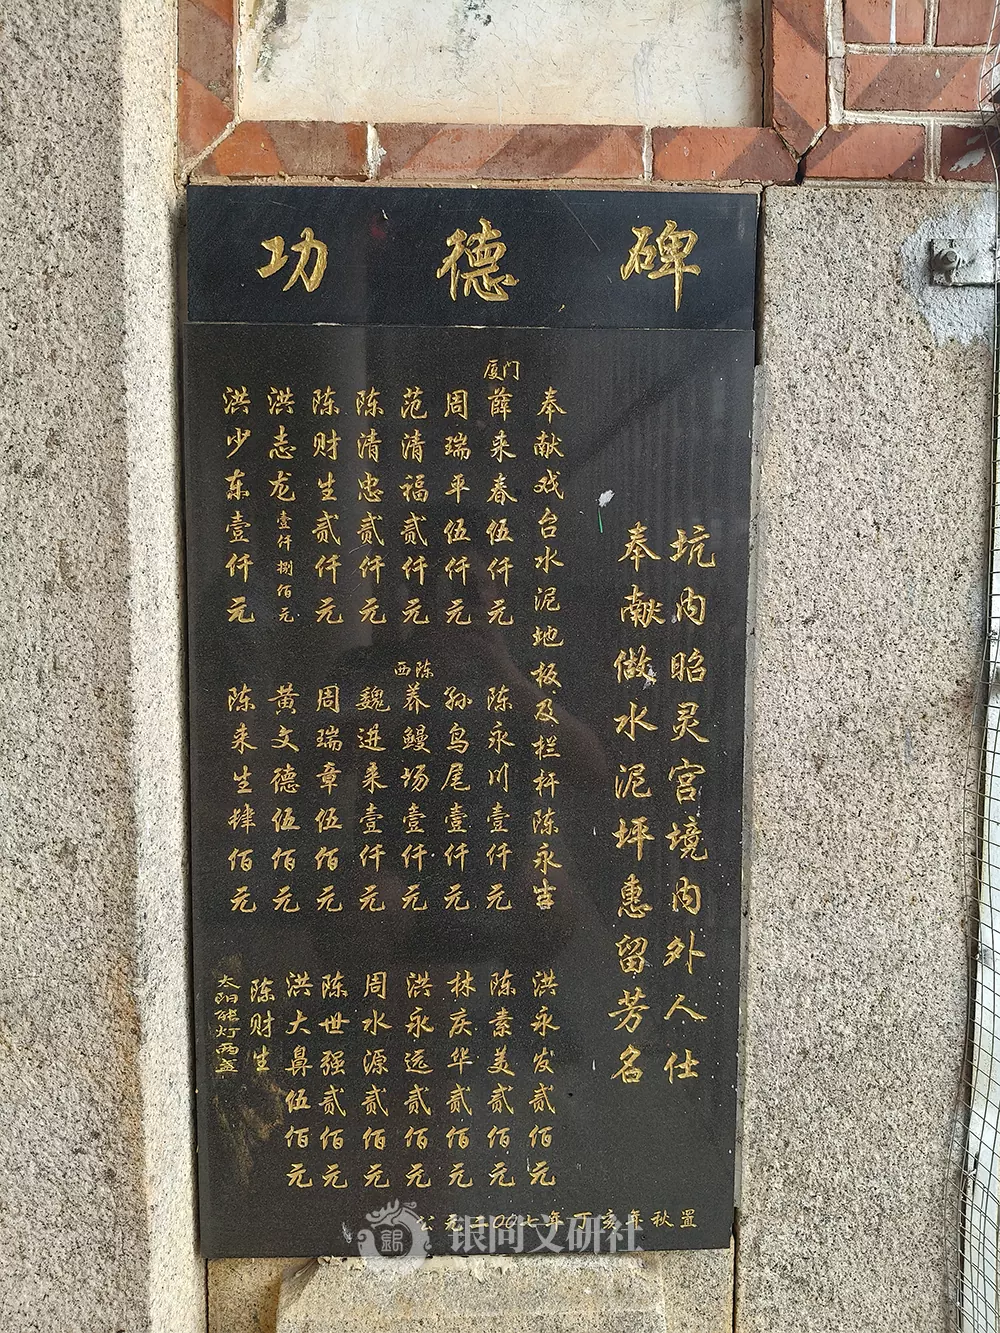 功德碑
坑内昭灵宫境内外人仕
奉献做水泥坪惠留芳名
奉献戏台水泥地板及栏杆陈永
厦门
薛来春伍仟元
周瑞平伍仟元
范清福贰仟元
陈清忠贰仟元
陈财生贰仟元
洪志龙壹仟捌佰元
洪少东壹仟元
陈永川壹仟元
孙鸟尾壹仟元
西陈
养鳗场壹仟元
魏进来壹仟元
周瑞章伍佰元
黄文德伍佰元
陈来生肆佰元
洪永发贰佰元
陈素美贰佰元
林庆华贰佰元
洪永远贰佰元
周水源贰佰元
陈世强贰佰元
洪大鼻伍佰元
陈财生
太阳能灯两盏
公元二00七年丁亥年秋置
银同文研社